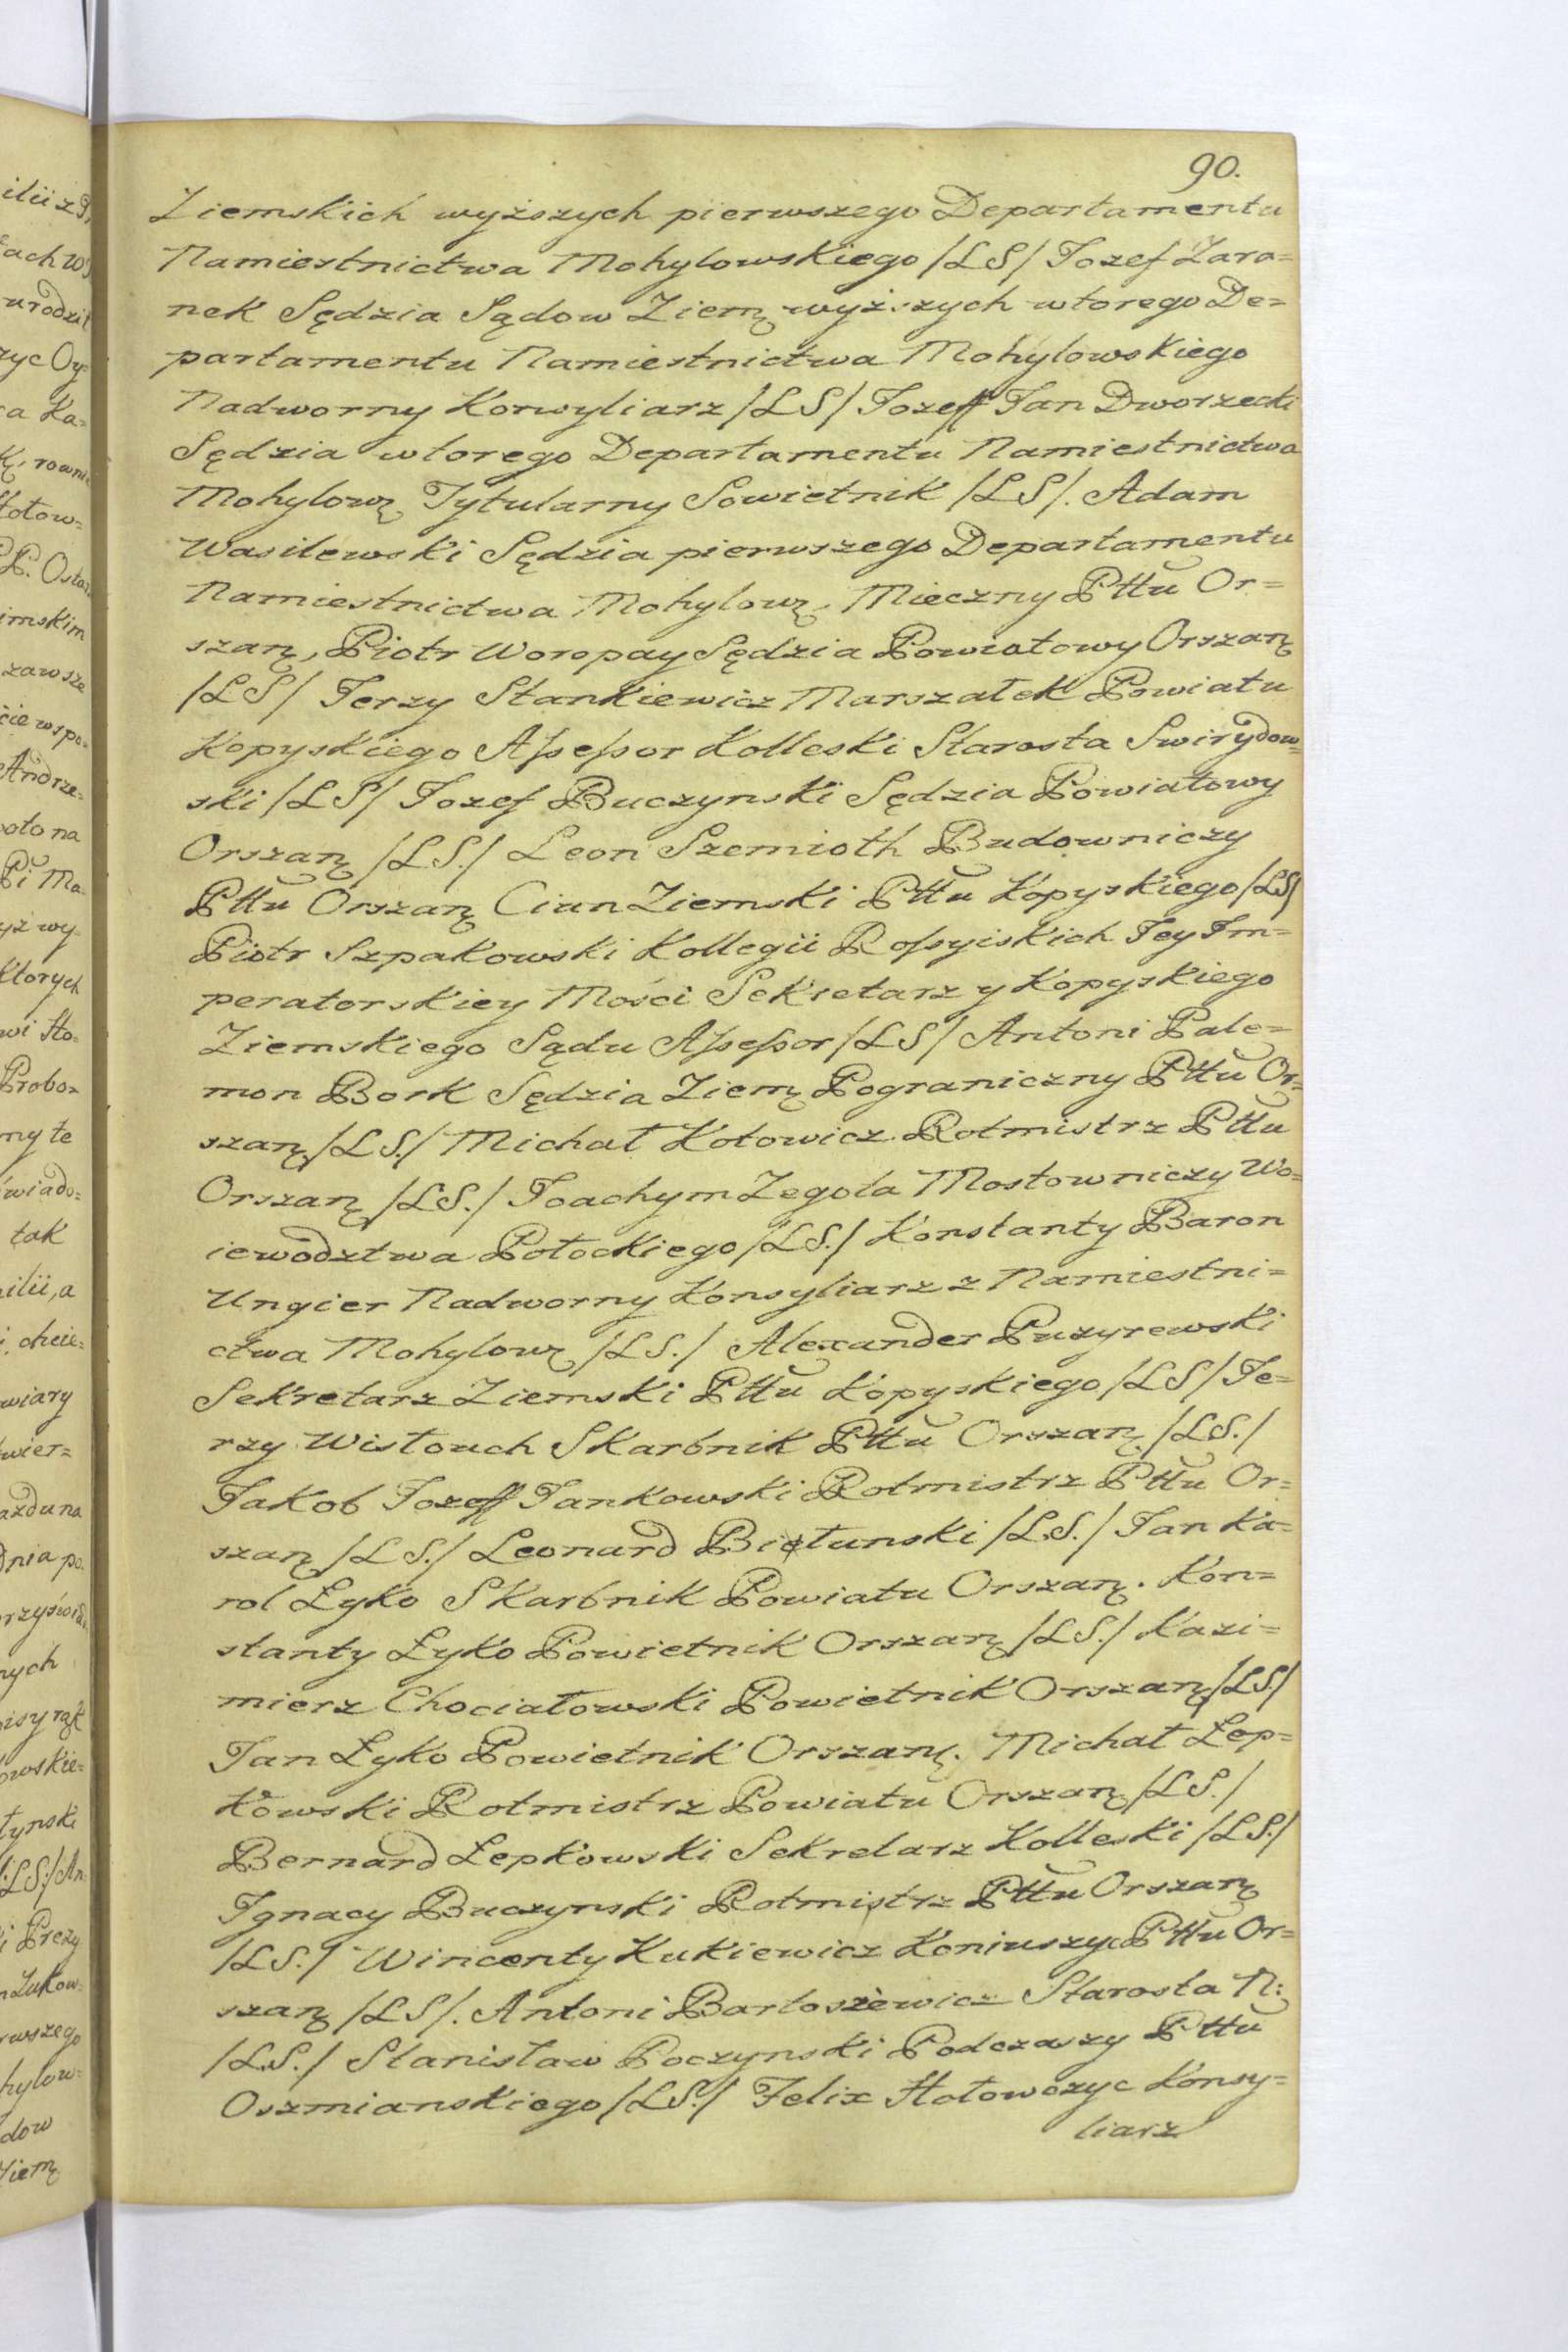 90.
Ziemskich wyższych pierwszego Departamentu
Namiestnictwa Mohylowskiego /LS/ Jozef Zara=
nek Sędzia Sądow Ziemę wyższych wtorego De=
partamentu Namiestnictwa Mohylowskiego
Nadworny Konsyliarz /LS/ Jozeff Jan Dworzecki
Sędzia wtorego Departamentu Namiestnictwa
Mohylowę Tytularny Sowietnik /LS/. Adam
Wasilewski Sędzia pierwszego Departamentu
Namiestnictwa Mohylowę, Mieczny Pttu Or=
szanę, Piotr Woropay Sędzia Powiatowy Orszanę
/LS/ Jerzy Stankiewicz Marszałek Powiatu
Kopyskiego Assessor Kolleski Starosta Swirydow=
ski /LS/ Jozef Buczynski Sędzia Powiatowy
Orszanę /LS./ Leon Szemioth Budowniczy
Pttu Orszanę Ciun Ziemski Pttu Kopyskiego /LS/
Piotr Szpakowski Kollegii Rossyiskich Jey Im=
peratorskiey Mości Sekretarz y Kopyskiego
Ziemskiego Sądu Assessor /LS/ Antoni Pale=
mon Bork Sędzia Ziemę Pograniczny Pttu Or=
szanę /LS./ Michał Kotowicz Rotmistrz Pttu
Orszanę /LS./ Joachym Zegola Mostowniczy Wo=
iewodztwa Połockiego /LS./ Konstanty Baron
Ungier Nadworny Konsyliarz z Namiestni=
ctwa Mohylowę /LS./ Alexander Puzyrewski
Sekretarz Ziemski Pttu Kopyskiego /LS/ Je=
rzy Wistouch Skarbnik Pttu Orszanę /LS./
Jakob Jozeff Jankowski Rotmistrz Pttu Or=
szanę /LS./ Leonard Biełunski /LS./ Jan Ka=
rol Łyko Skarbnik Powiatu Orszanę. Kon=
stanty Łyko Powietnik Orszanę /LS./ Kazi=
mierz Chociatowski Powietnik Orszanę /LS./
Jan Łyko Powietnik Orszanę. Michał Łep=
kowski Rotmistrz Powiatu Orszanę /LS./
Bernard Łepkowski Sekretarz Kolleski /LS./
Ignacy Buczynski Rotmistrz Pttu Orszanę
/LS./ Wincenty Kukiewicz Koniuszyc Pttu Or=
szanę /LS/. Antoni Bartoszewicz Starosta N:
/LS./ Stanisław Poczynski Podczaszy Pttu
Oszmianskiego /LS./ Felix Hołowczyc Konsy=
liarz